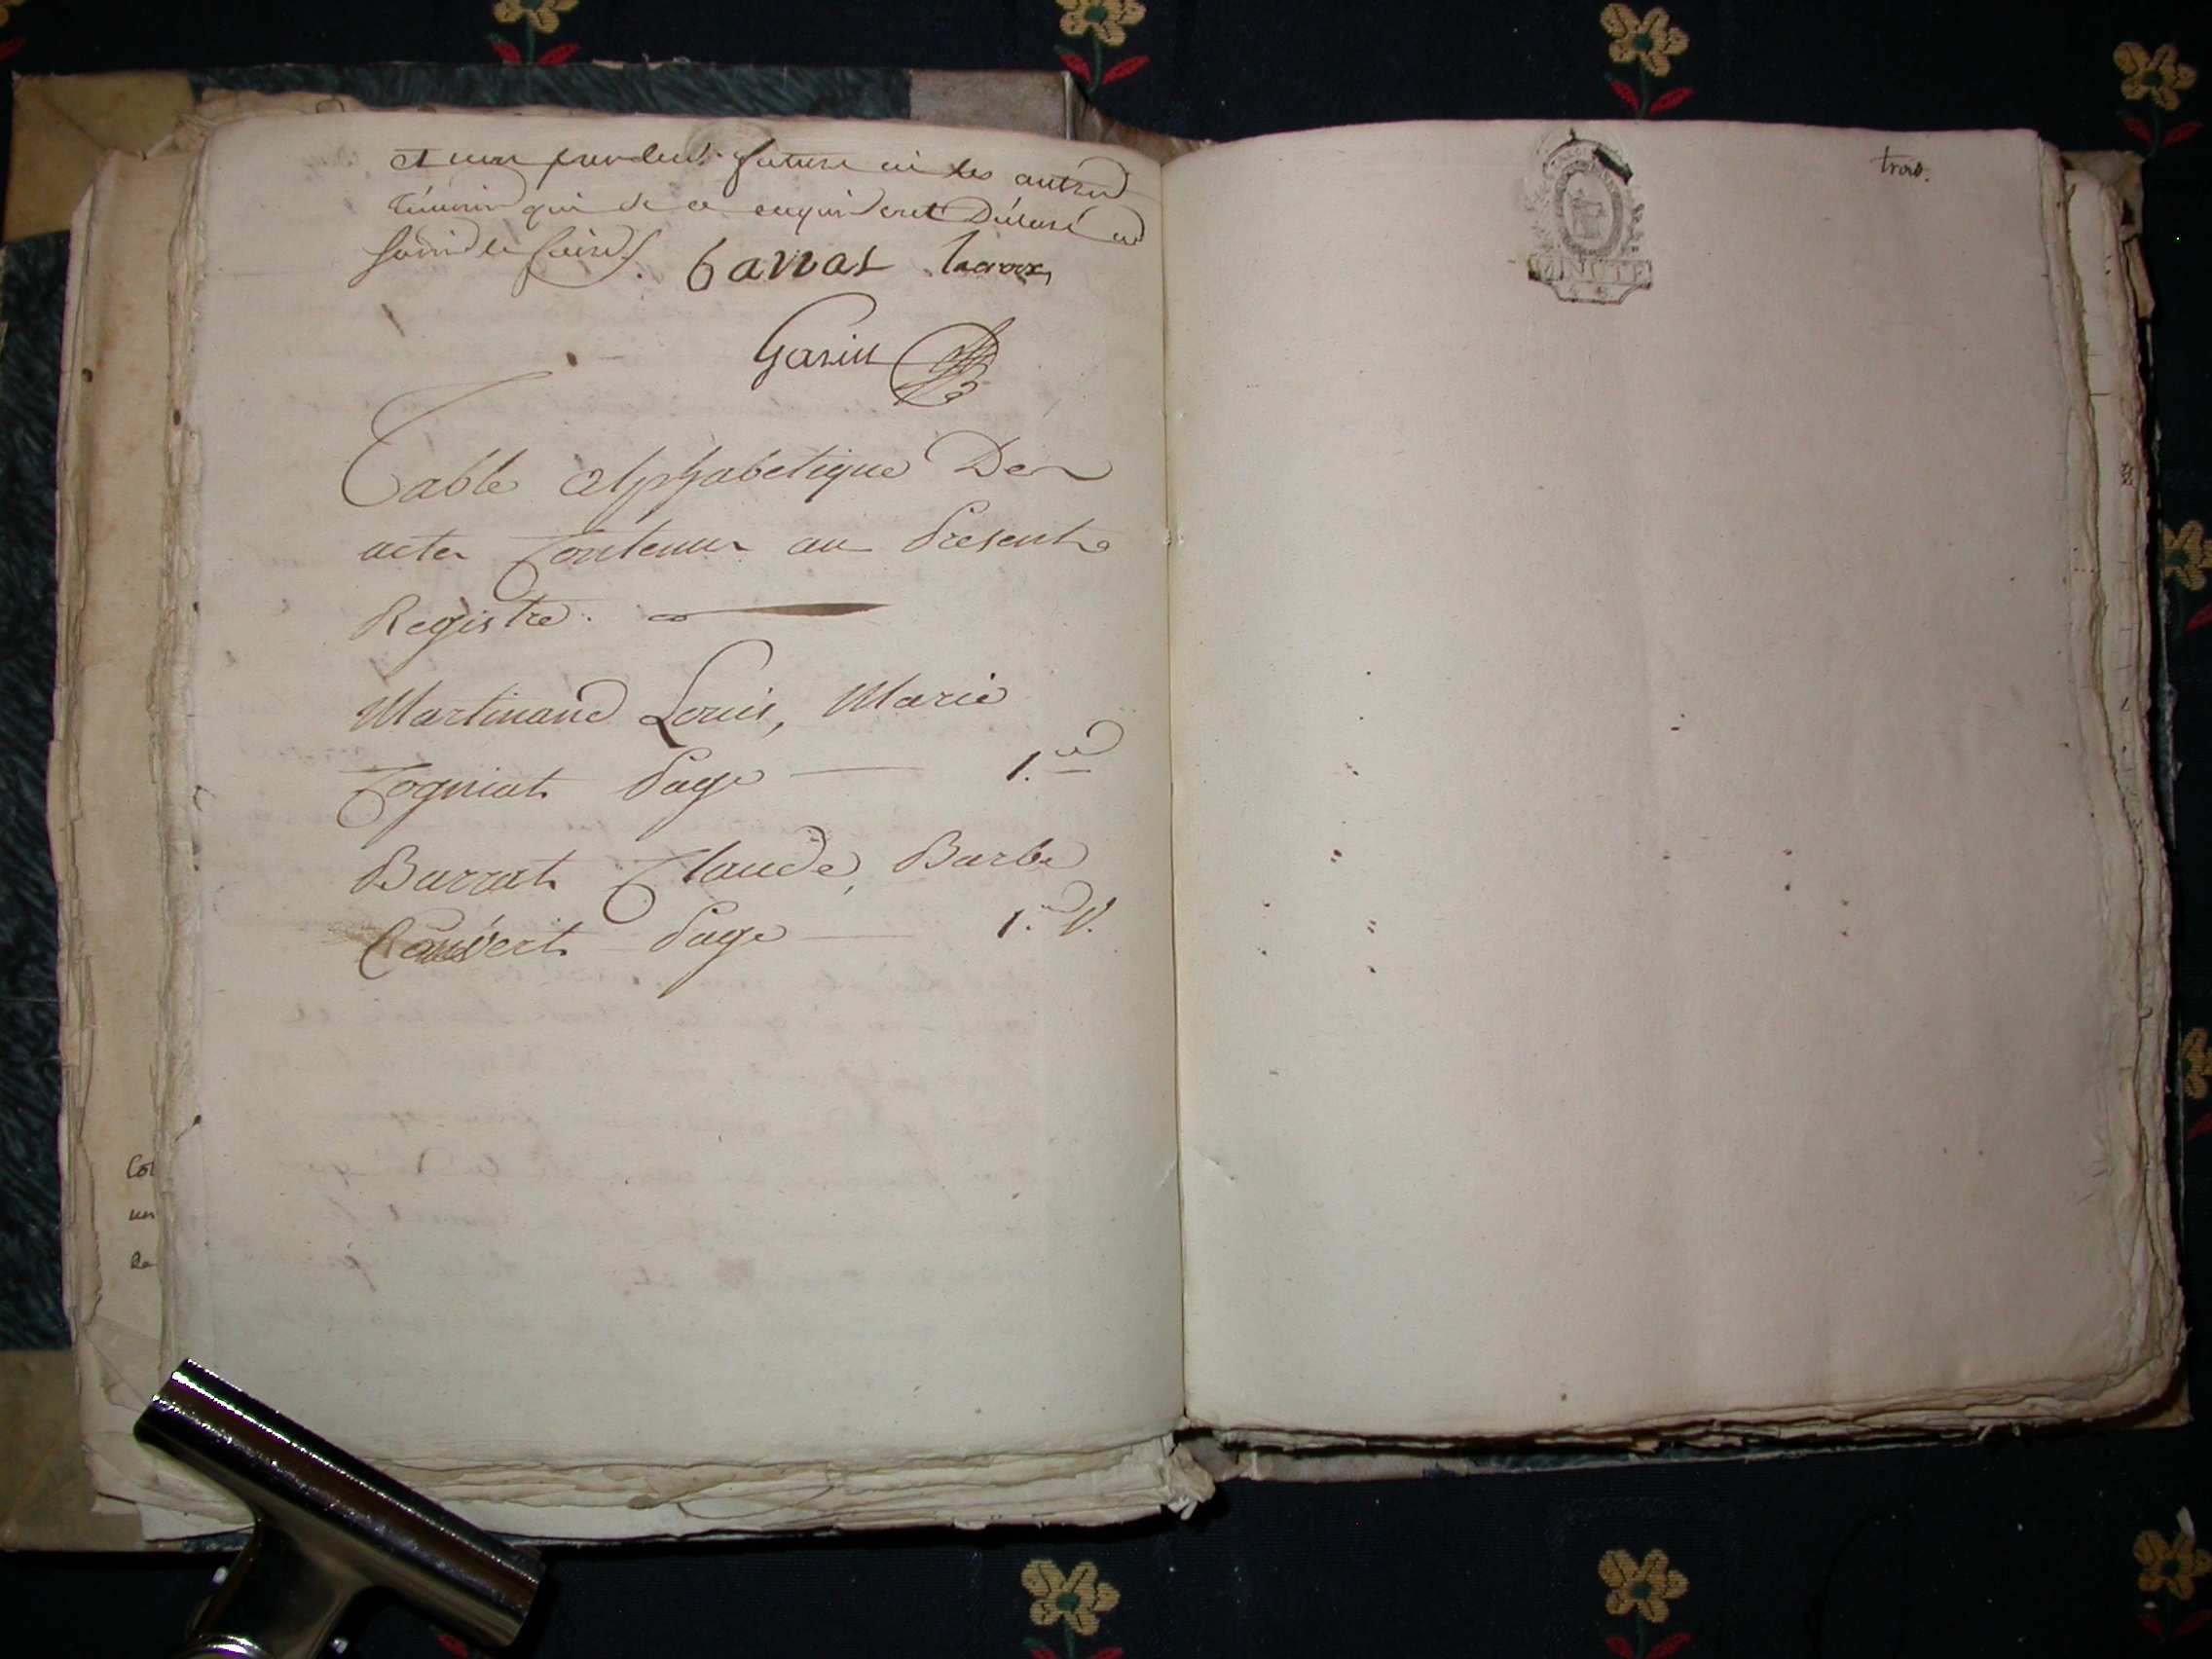 et non la future ni les autres
témoins qui de ce enquis ont déclaré ne
savoir le faire. barrat lacroix
Garin
Table alphabetique Des
actes Contenus au Present
Registre.
Martinand Louis, Marie
Cogniat Page — 1.er
Barrat Claude, Barbe
Page — 1.er V.
trois.
MINUTE
Col
un
la